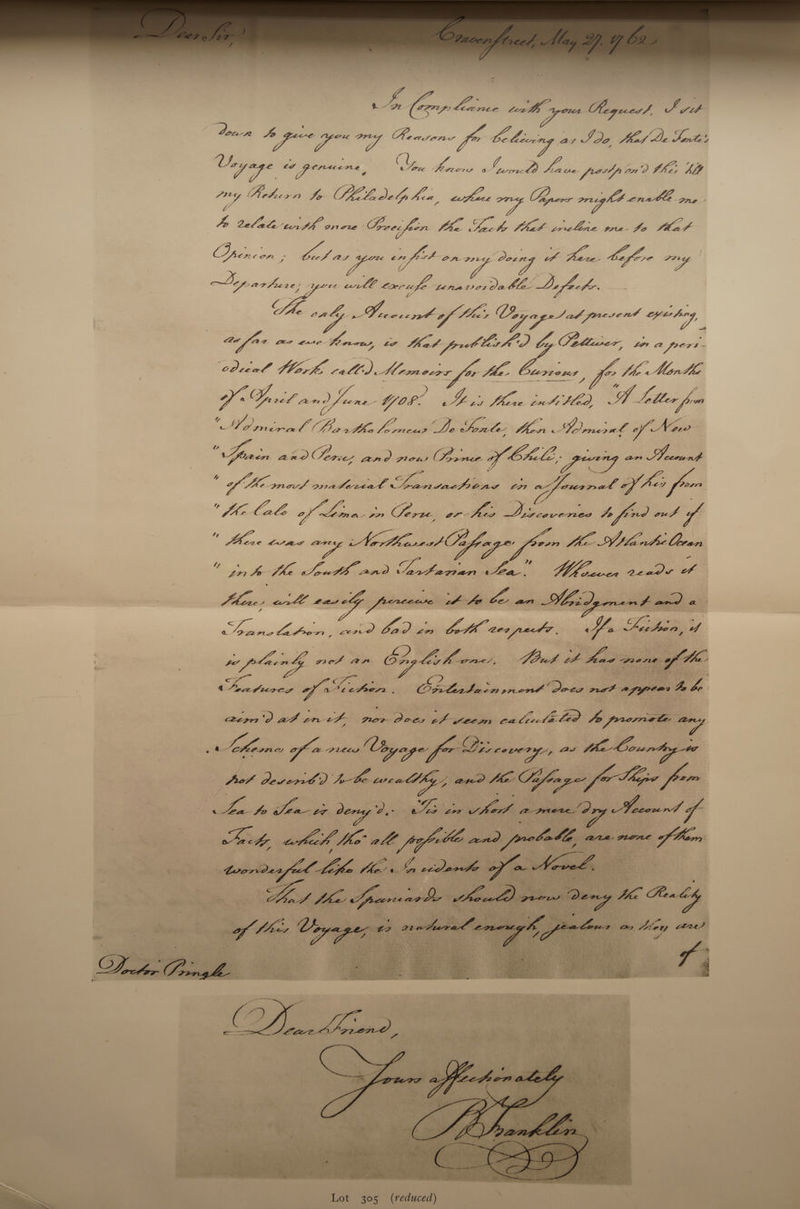 Dear Sir, Cravenstreet, May 27. 1762.
In Compliance with your Request, I sit
down to give you my Reasons for believing as I do, that De Fonte's
Voyage is genuine, You know I would have postpon'd this till
my Return to Philadelphia, where my Papers might enable me
to relate with more Precision the Facts that incline me to that
Opinion; but as you insist on my doing it here before my
Departure, you will excuse unavoidable Defects.
The only Account of this Voyage at present existing,
as far as we know, is that publish'd by Pettiver, in a peri-
odical Work call'd Memoirs for the Curious, for the Months
of April and June 1708. It is there intitled, "A Letter from
"Admiral Bartholomeus De Fonte, then Admiral of New
"Spain and Peru, and now Prince of Chili; giving an Account
"of the most material Transactions in a Journal of his from
"the Calo of Lima in Peru, or his Discoveries to find out if
"there was any Northwest Passage from the Atlantic Ocean
"into the South and Tartarian Sea." Whoever reads it
there, will easily perceive it to be an Abridgment and a
Translation, and bad in both respects. If a Fiction, it
is plainly not an English one. But it has none of the
Features of Fiction. Entertainment does not appear to be
aim'd at in it, nor does it seem calculated to promote any
Scheme of a new Voyage for Discovery, as the Country is
not describ'd to be wealthy, and the Passage for Ships from
Sea to Sea is deny'd. Tis in short a mere dry Account of
Facts, which tho' all possible and probable, are none of them
wonderful like the Incidents of a Novel.
That the Spaniards should now deny the Reality
of this Voyage, is natural enough, jealous as they are
Doctor Pringle of
Dear Friend,
Yours affectionately
B Franklin
Lot 305 (reduced)